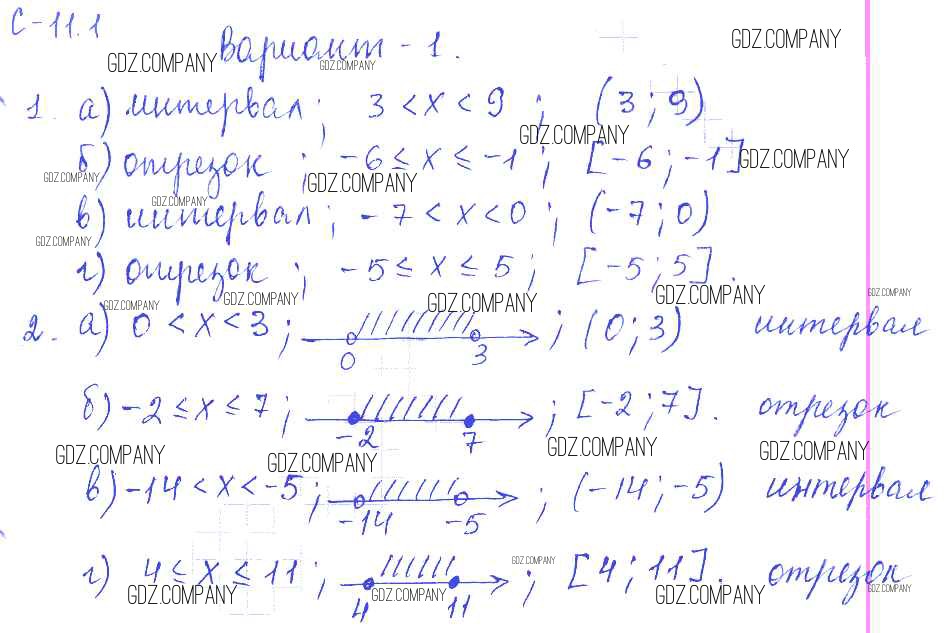 С-11.1
Вариант - 1.
GDZ.COMPANY GDZ.COMPANY GDZ.COMPANY
1. а) интервал ; 3 < x < 9 ; (3 ; 9)
GDZ.COMPANY
б) отрезок ; -6 ≤ x ≤ -1 ; [-6 ; -1]
GDZ.COMPANY GDZ.COMPANY GDZ.COMPANY
GDZ.COMPANY
в) интервал ; -7 < x < 0 ; (-7 ; 0)
GDZ.COMPANY
г) отрезок ; -5 ≤ x ≤ 5 ; [-5 ; 5].
GDZ.COMPANY GDZ.COMPANY GDZ.COMPANY GDZ.COMPANY GDZ.COMPANY
2. а) 0 < x < 3 ; ; (0 ; 3) интервал
0 3
б) -2 ≤ x ≤ 7 ; ; [-2 ; 7]. отрезок
-2 7
GDZ.COMPANY GDZ.COMPANY GDZ.COMPANY GDZ.COMPANY
в) -14 < x < -5 ; ; (-14 ; -5) интервал
-14 -5
GDZ.COMPANY
г) 4 ≤ x ≤ 11 ; ; [4 ; 11]. отрезок
4 11
GDZ.COMPANY GDZ.COMPANY GDZ.COMPANY GDZ.COMPANY